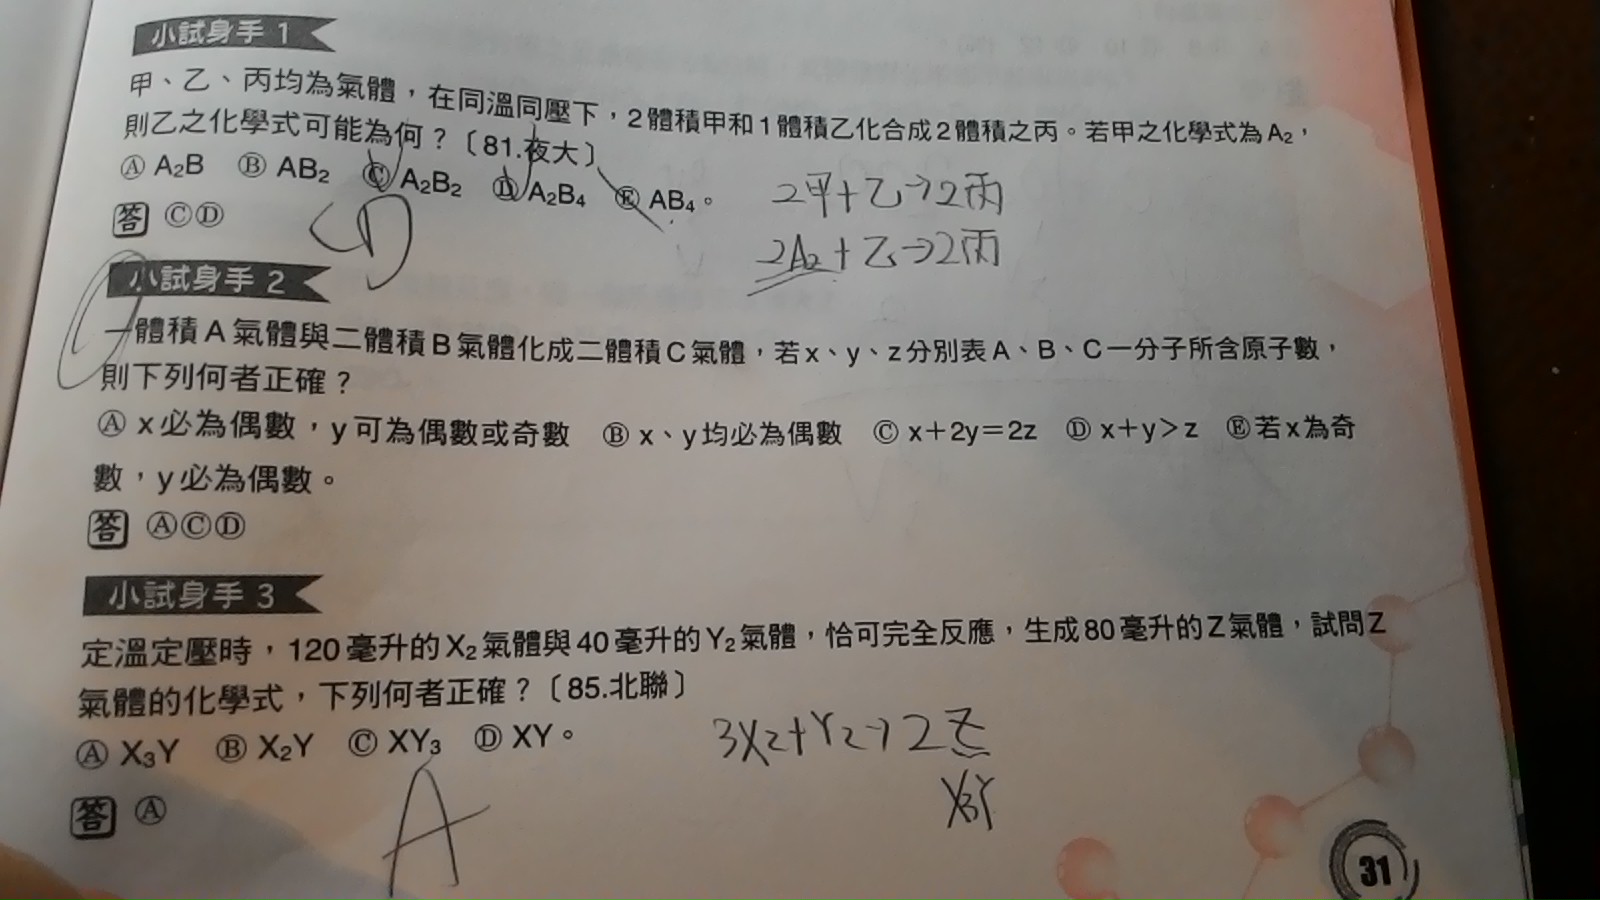 小試身手 1
甲、乙、丙均為氣體，在同溫同壓下，2體積甲和1體積乙化合成2體積之丙。若甲之化學式為A₂，
則乙之化學式可能為何？〔81.夜大〕
Ⓐ A₂B Ⓑ AB₂ Ⓒ A₂B₂ Ⓓ A₂B₄ Ⓔ AB₄。
2甲+乙→2丙
答 ⒸⒹ
CD
2A₂+乙→2丙
小試身手 2
一體積A氣體與二體積B氣體化成二體積C氣體，若x、y、z分別表A、B、C一分子所含原子數，
則下列何者正確？
Ⓐ x必為偶數，y可為偶數或奇數 Ⓑ x、y均必為偶數 Ⓒ x＋2y＝2z Ⓓ x＋y＞z Ⓔ若x為奇
數，y必為偶數。
答 ⒶⒸⒹ
小試身手 3
定溫定壓時，120毫升的X₂氣體與40毫升的Y₂氣體，恰可完全反應，生成80毫升的Z氣體，試問Z
氣體的化學式，下列何者正確？〔85.北聯〕
Ⓐ X₃Y Ⓑ X₂Y Ⓒ XY₃ Ⓓ XY。
3X₂+Y₂→2Z
X₃Y
答 Ⓐ
A
31